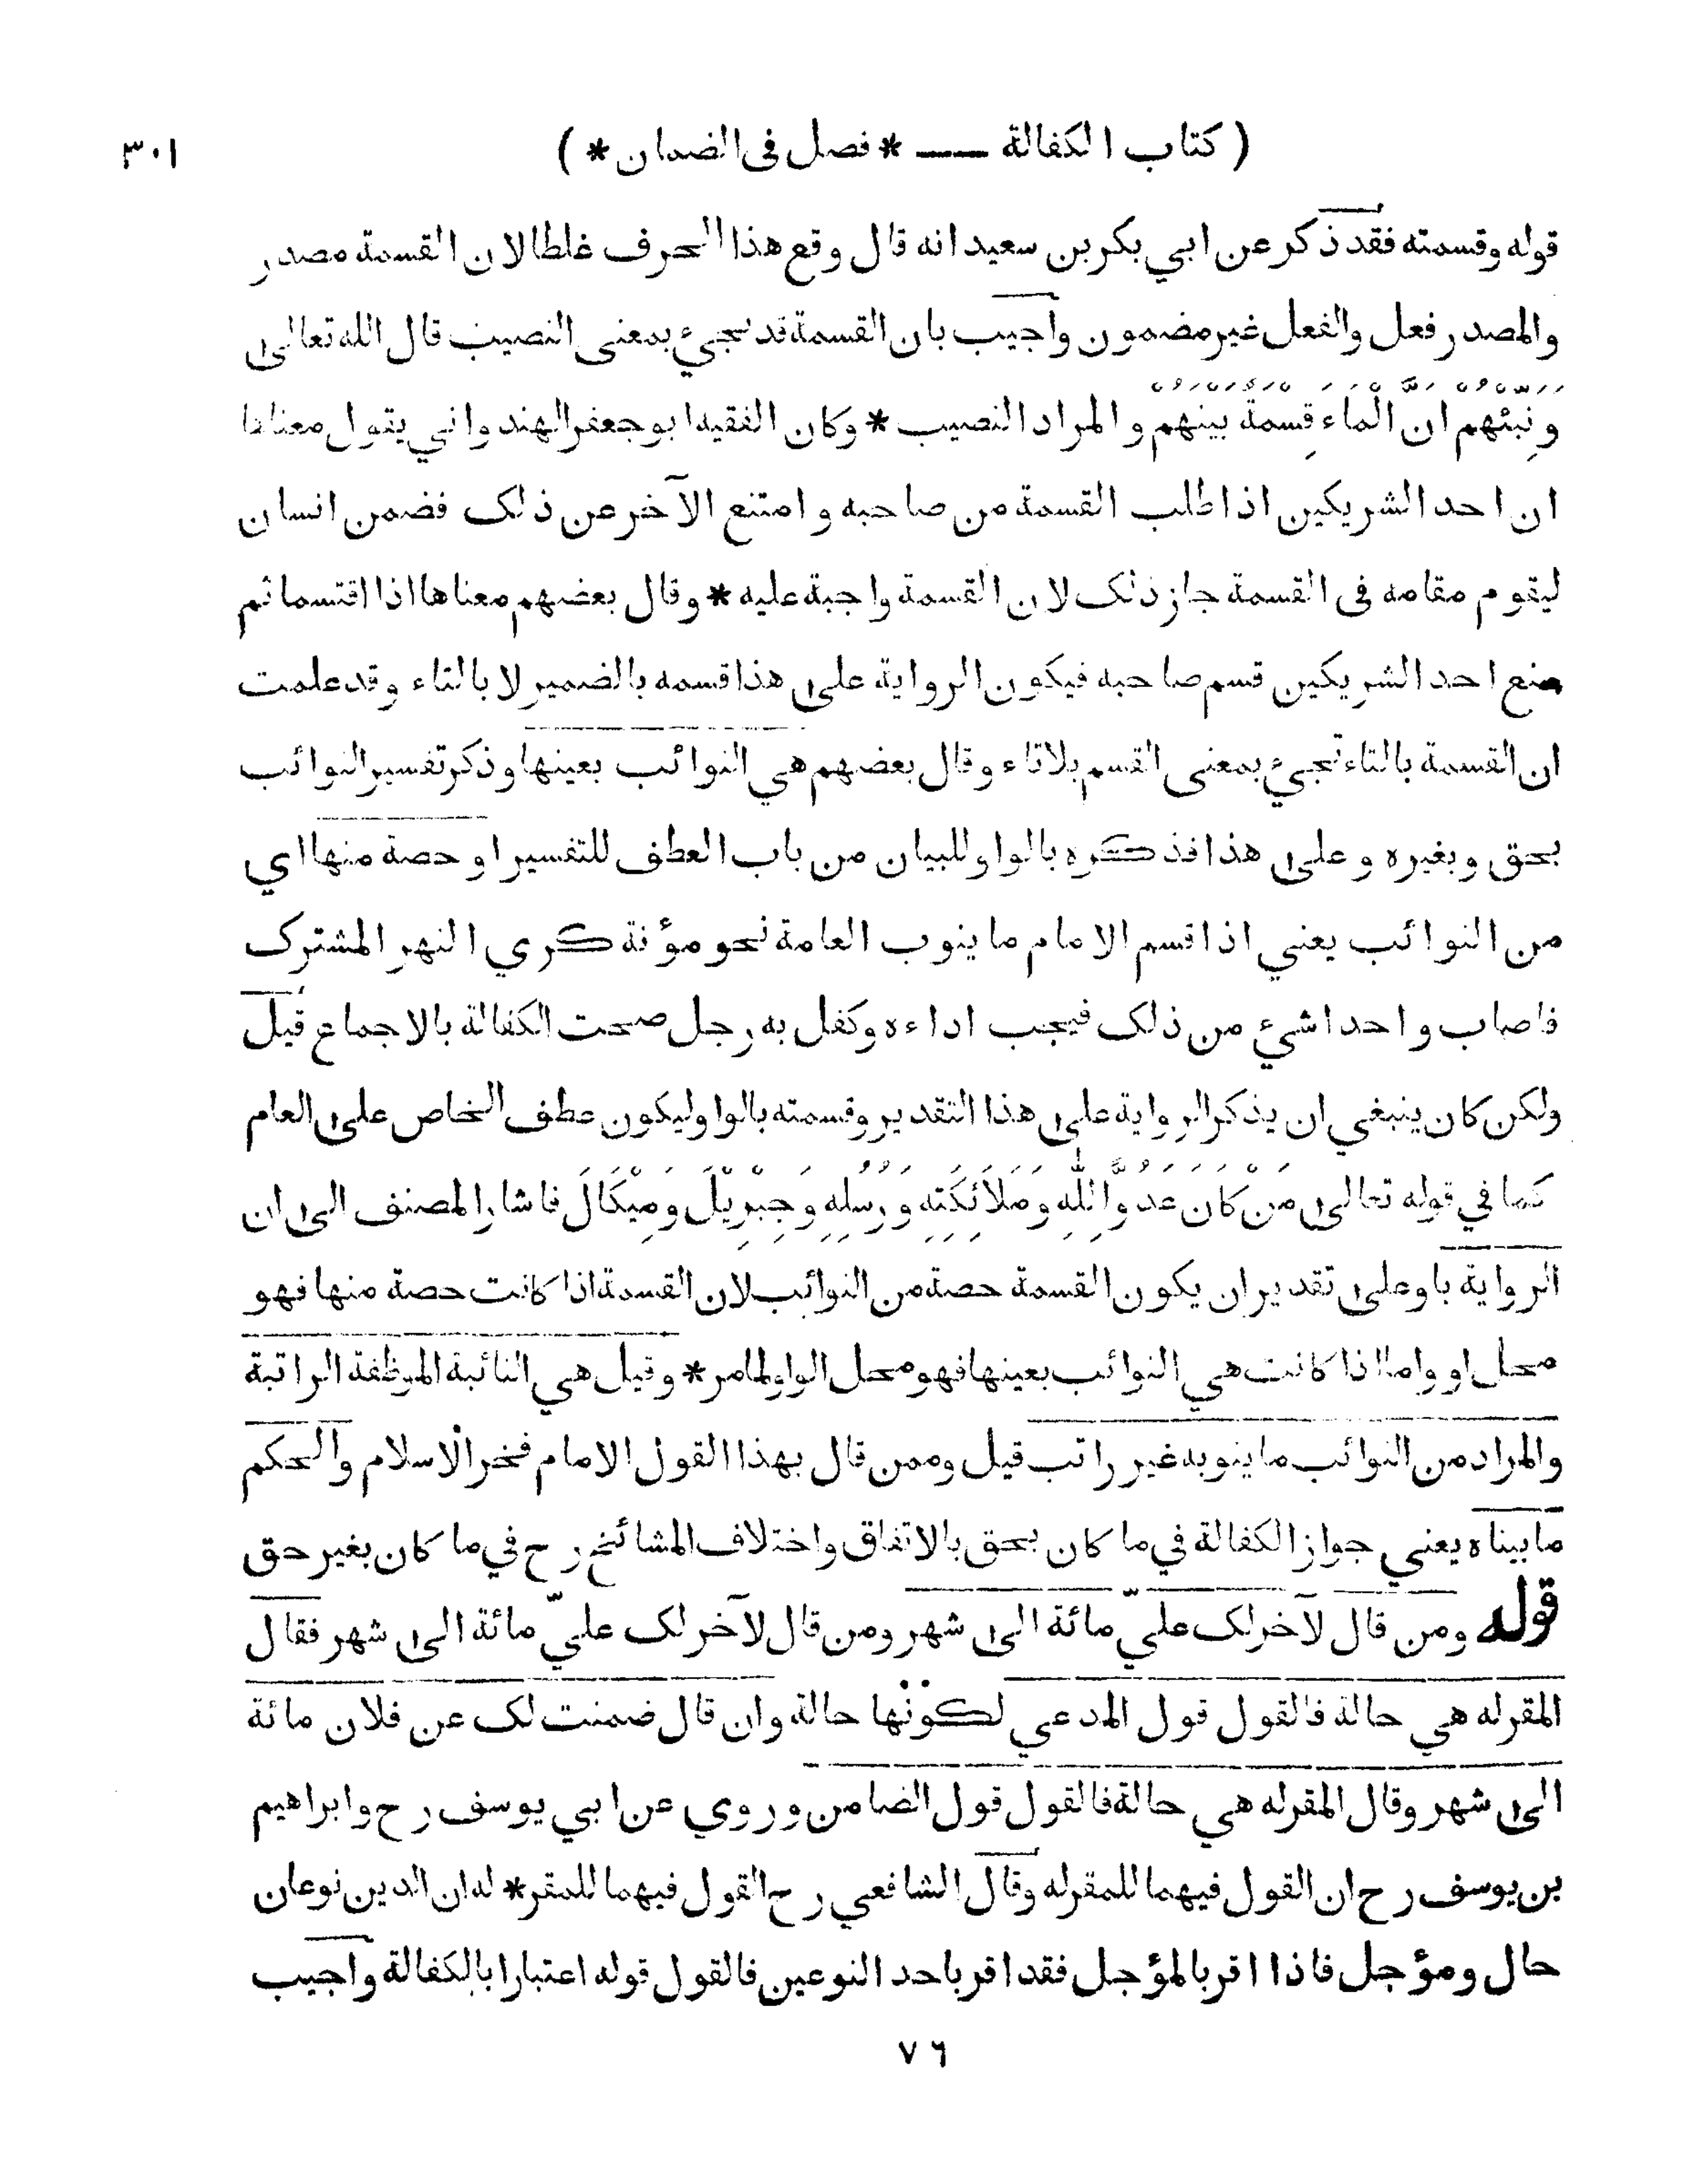 ( كتاب الكفالة — * فصل في الضمان * ) ٣٠١
قوله وقسمته فقد ذكر عن ابي بكر بن سعيد انه قال وقع هذا الحرف غلطا لان القسمة مصدر
والمصدر فعل والفعل غير مضمون واجيب بان القسمة قد تجيء بمعنى النصيب قال الله تعالى
وَنَبِّئْهُمْ اَنَّ الْمَاءَ قِسْمَةٌ بَيْنَهُمْ والمراد النصيب * وكان الفقيه ابو جعفر الهندواني يقول معناها
ان احد الشريكين اذا طلب القسمة من صاحبه وامتنع الآخر عن ذلك فضمن انسان
ليقوم مقامه في القسمة جاز ذلك لان القسمة واجبة عليه * وقال بعضهم معناها اذا اقتسما ثم
منع احد الشريكين قسم صاحبه فيكون الرواية على هذا قسمه بالضمير لا بالتاء وقد علمت
ان القسمة بالتاء تجيء بمعنى القسم بلا تاء وقال بعضهم هي النوائب بعينها وذكر تفسير النوائب
بحق وبغيره وعلى هذا فذكره بالواو للبيان من باب العطف للتفسير او حصة منها اي
من النوائب يعني اذا قسم الامام ما ينوب العامة نحو مؤنة كري النهر المشترك
فاصاب واحدا شيء من ذلك فيجب اداءه وكفل به رجل صحت الكفالة بالاجماع قيل
ولكن كان ينبغي ان يذكر الرواية على هذا التقدير وقسمته بالواو ليكون عطف الخاص على العام
كما في قوله تعالى مَنْ كَانَ عَدُوًّا لِلّٰهِ وَمَلَائِكَتِهِ وَرُسُلِهِ وَجِبْرِيْلَ وَمِيْكَالَ فاشار المصنف الى ان
الرواية باو على تقدير ان يكون القسمة حصة من النوائب لان القسمة اذا كانت حصة منها فهو
محل او واما اذا كانت هي النوائب بعينها فهو محل الواو لما مر * وقيل هي النائبة الموظفة الراتبة
والمراد من النوائب ما ينوبه غير راتب قيل وممن قال بهذا القول الامام فخر الاسلام والحكم
ما بيناه يعني جواز الكفالة في ما كان بحق بالاتفاق واختلاف المشائخ رح في ما كان بغير حق
قوله ومن قال لآخر لك عليّ مائة الى شهر ومن قال لآخر لك عليّ مائة الى شهر فقال
المقر له هي حالة فالقول قول المدعي لكونها حالة وان قال ضمنت لك عن فلان مائة
الى شهر وقال المقر له هي حالة فالقول قول الضامن وروي عن ابي يوسف رح وابراهيم
بن يوسف رح ان القول فيهما للمقر له وقال الشافعي رح القول فيهما للمقر * له ان الدين نوعان
حال ومؤجل فاذا اقر بالمؤجل فقد اقر باحد النوعين فالقول قوله اعتبارا بالكفالة واجيب
٧٦